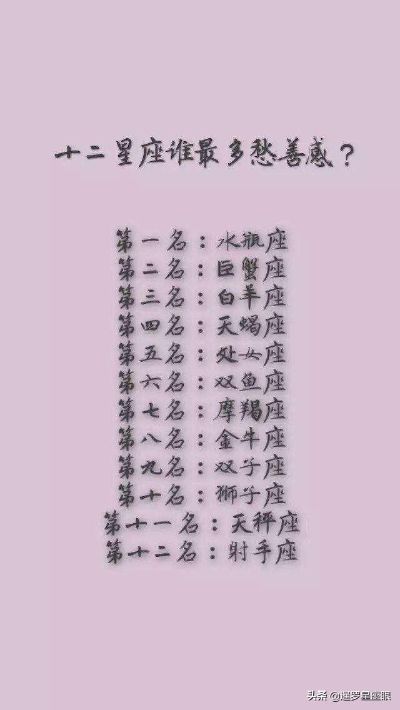 十二星座谁最多愁善感？
第一名：水瓶座
第二名：巨蟹座
第三名：白羊座
第四名：天蝎座
第五名：处女座
第六名：双鱼座
第七名：摩羯座
第八名：金牛座
第九名：双子座
第十名：狮子座
第十一名：天秤座
第十二名：射手座
头条 @暹罗星座眼